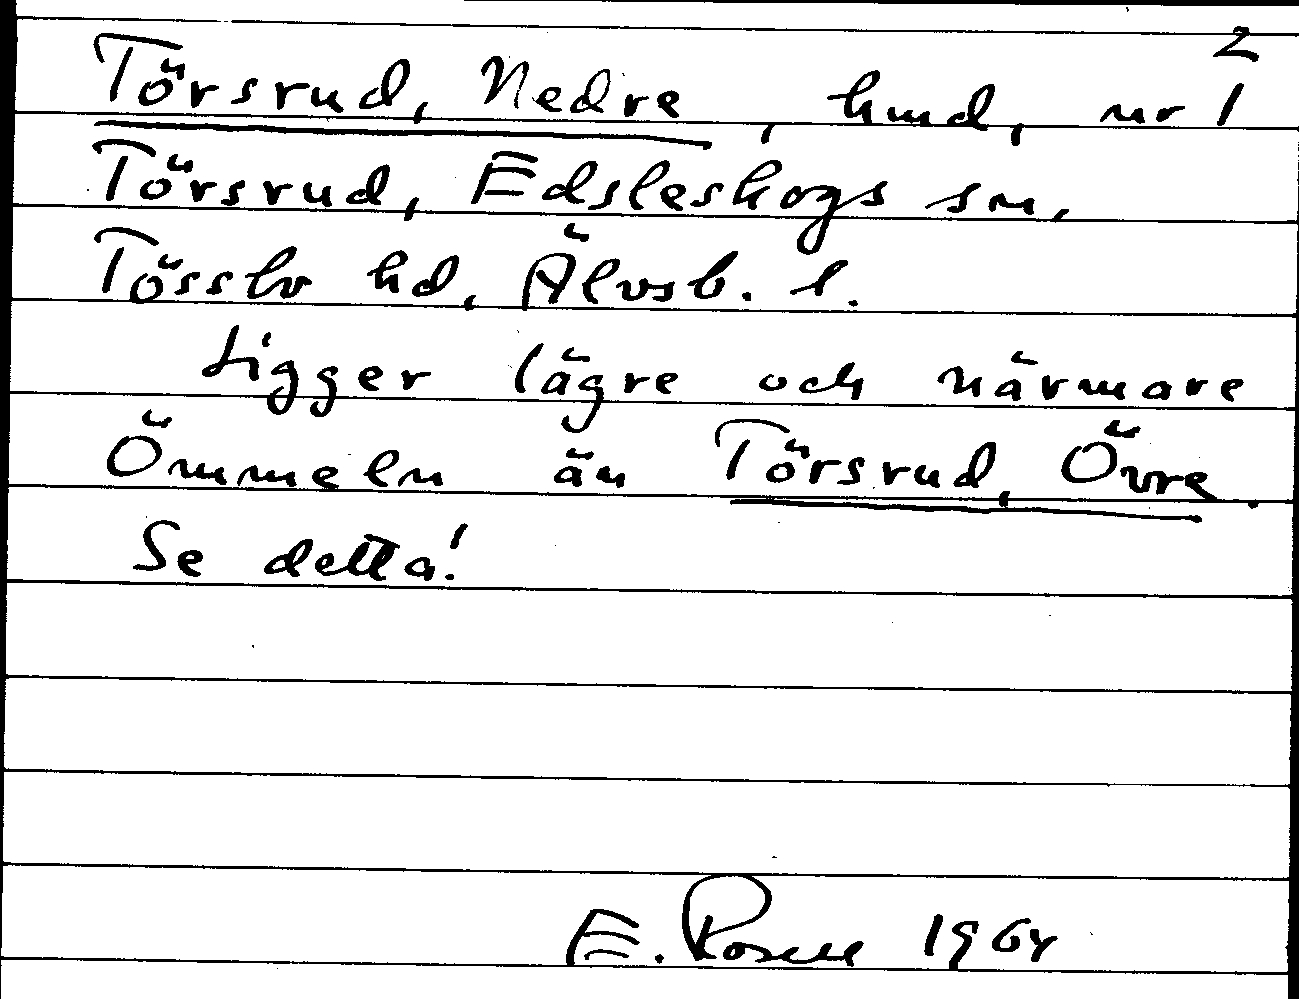 2
Törsrud, Nedre, hmd, nr 1
Törsrud, Edsleskogs sn,
Tösslv hd, Älvsb. l.
Ligger lägre och närmare
Ömmeln än Törsrud, Övre.
Se detta!
E. Rosell 1964